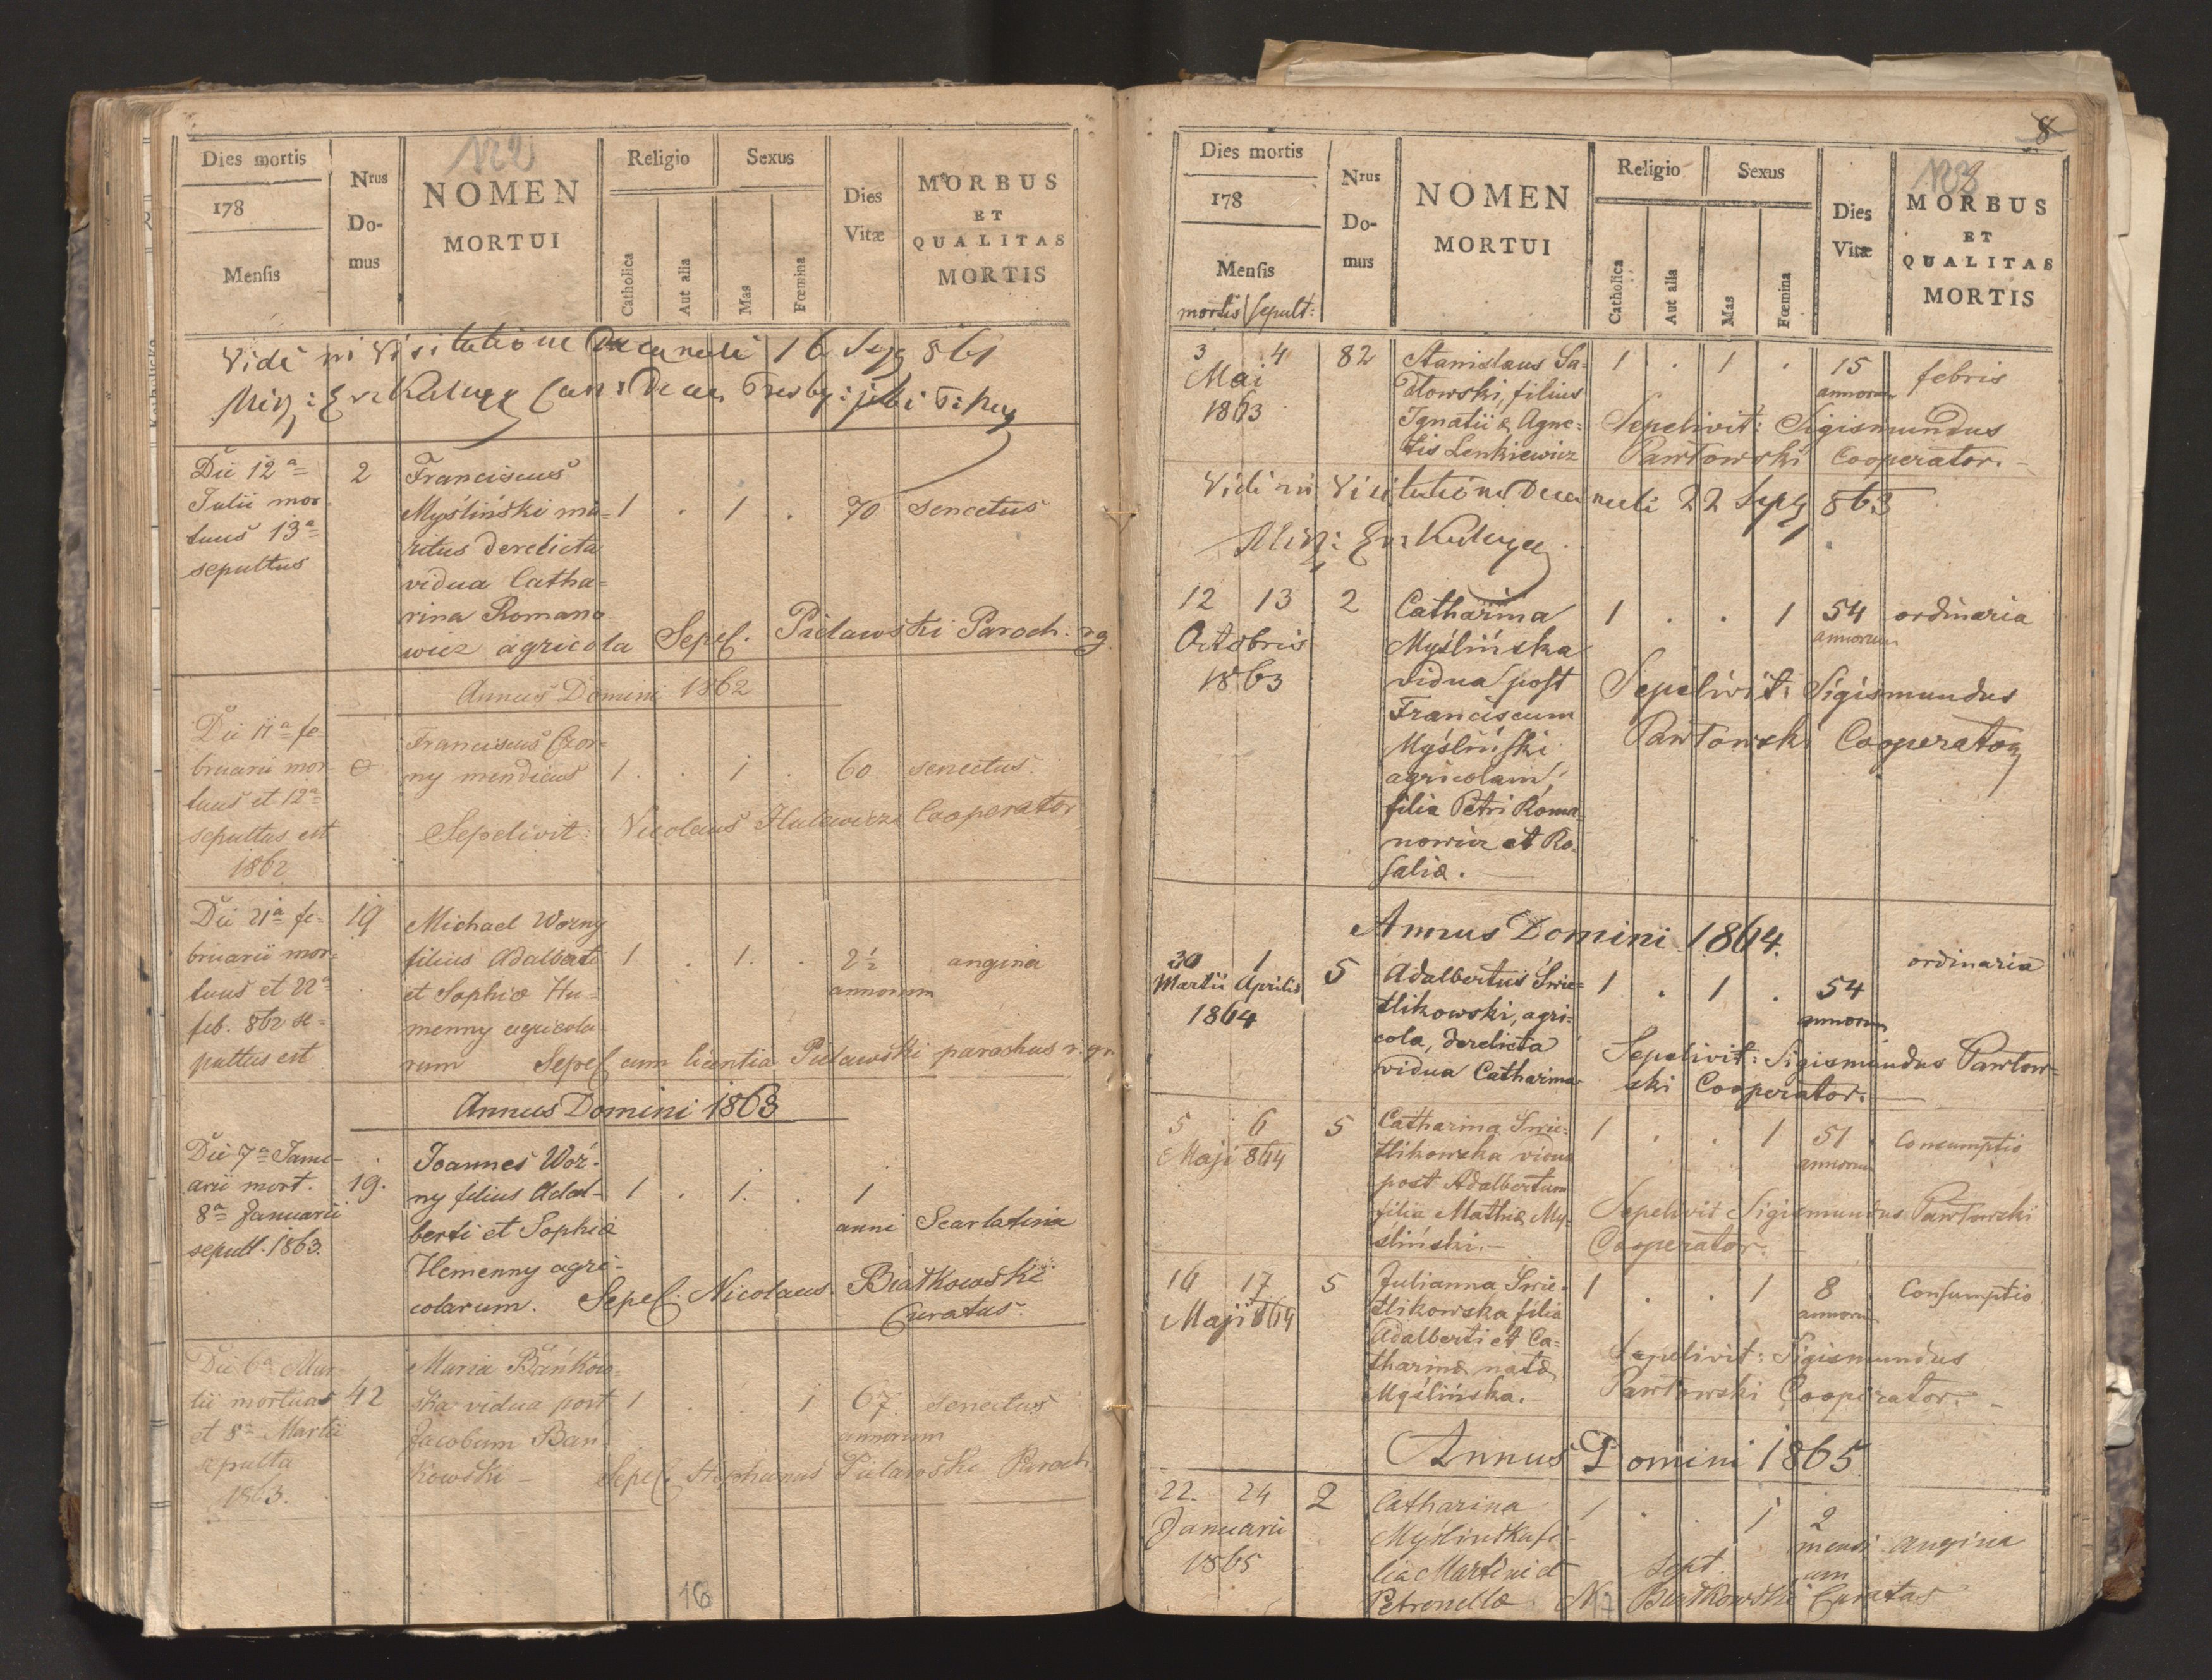 Dies mortis
178
Mensis
Nrus
Do-
mus
NOMEN
MORTUI
Religio
Catholica
Aut alia
Sexus
Mas
Fœmina
Dies
Vitæ
MORBUS
ET
QUALITAS
MORTIS
Vidi in Visitatione Decanali 16 861
Die 12a
Julii mor
tuus 13a
sepultus
2
Franciscus
Myśliński ma=
ritus derelicta
vidua Catha=
rina Romano
wicz agricola Sepel. Pulawski Paroch. rg.
1 . 1 . 70 senectus
Annus Domini 1862
Die 11a fe
bruarii mor
tuus et 12a
sepultus est
1862
Franciscus Czor=
ny mendicus 1 . 1 . 60 senectus.
Sepelivit: Nicolaus Cooperator
Die 21a fe=
bruarii mor=
tuus et 22a
feb. 862 se=
pultus est
19
Michael Worny
filius Adalberti
et Sophiæ Hu=
menny agricola
rum Sepel cum licentia Pulawski parochus r. gr.
1 . 1. . 2½
annorum
angina
Annus Domini 1863
Die 7a Janu-
arii mort.
8a Januarii
sepult. 1863.
19.
Joannes Wor-
ny filius Adal-
berti et Sophiæ
Hemenny agri-
colarum. Sepel. Nicolaus Białkowski
Curatus.
1 . 1. . 1
anni Scarlatina
Die 6a Mar
tii mortuas
et 8a Martii
sepulta
1863.
42
Maria Bańkow=
ska vidua post
Jacobum Ban
kowski - Sepel. Stephanus Pulawski Paroch.
1 . . 1 67
annorum
senectus
16
8
Dies mortis
178
Mensis
mortis sepult:
Nrus
Do-
mus
NOMEN
MORTUI
Religio
Catholica
Aut alia
Sexus
Mas
Fœmina
Dies
Vitæ
MORBUS
ET
QUALITAS
MORTIS
3 4
Mai
1863
82
Stanislaus Sa=
dłowski, filius
Ignatii & Agne=
tis Lenkiewicz
1 . 1 . 15
annorum
febris
Sepelivit: Sigismundus
Pawłowski Cooperator.-
Vidi in Visitatione Decanali 22 863
12 13
Octobris
1863
2
Catharina
Myślińska
vidua post
Franciscum
Myśliński
agricolam,
filia Petri Roma
nowicz et Ro=
saliæ.
1 . . 1 54
annorum
ordinaria
Sepelivit: Sigismundus
Pawłowski Cooperator
Annus Domini 1864.
30 1
Martii Aprilis
1864
5
Adalbertus Świe=
tlikowski, agri=
cola, derelicta
vidua Catharina
1 . 1 . 54
annorum
ordinaria
Sepelivit: Sigismundus Pawłow=
ski Cooperator.
5 6
Maji 864
5
Catharina Świe=
tlikowska vidua
post Adalbertum
filia Mathiæ My=
śliński.-
1 . . 1 51
annorum
Consumptio
Sepelivit Sigismundus Pawłowski
Cooperator.
16 17
Maji 864
5
Julianna Świe=
tlikowska filia
Adalberti et Ca=
tharinæ natæ
Myślińska.
1 . . 1 8
annorum
Consumptio
Sepelivit: Sigismundus
Pawłowski Cooperator.-
Annus Domini 1865
22. 24
Januarii
1865
2
Catharina
Myślińska fi-
lia Martini et
Petronellæ
1 . . 1 2
mensi
um
angina
sept.
N Białkowski Curatus